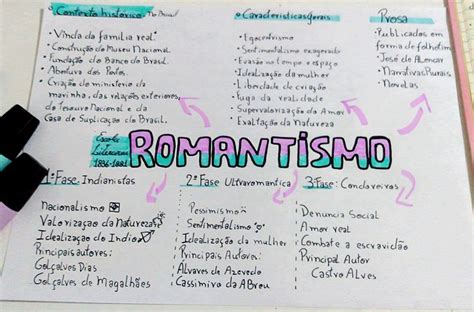 Contexto histórico No Brasil
• Vinda da família real.
• Construção do Museu Nacional.
• Fundação do Banco do Brasil.
• Abertura dos Portos.
• Criação do ministério da
marinha, das relações exteriores,
do Tesouro Nacional e da
Casa de Suplicação do Brasil.
Características gerais
• Egocentrismo
• Sentimentalismo exagerado
• Evasão no tempo e espaço
• Idealização da mulher
• Liberdade de criação
• Fuga da realidade
• Supervalorização do Amor
• Exaltação da Natureza
Prosa
• Publicados em
forma de folhetim
• José de Alencar
• Narrativas Rurais
• Novelas
Escola
Literária
1836-1881
ROMANTISMO
1ª Fase: Indianistas
Nacionalismo
Valorização da Natureza
Idealização do Indio
Principais autores:
Gonçalves Dias
Gonçalves de Magalhães
2ª Fase Ultraromantica
Pessimismo
Sentimentalismo
Idealização da mulher
Principais Autores:
Alvares de Azevedo
Cassimiro da Abreu
3ª Fase: Condoreiros
Denuncia Social
Amor real
Combate a escravidão
Principal Autor
Castro Alves